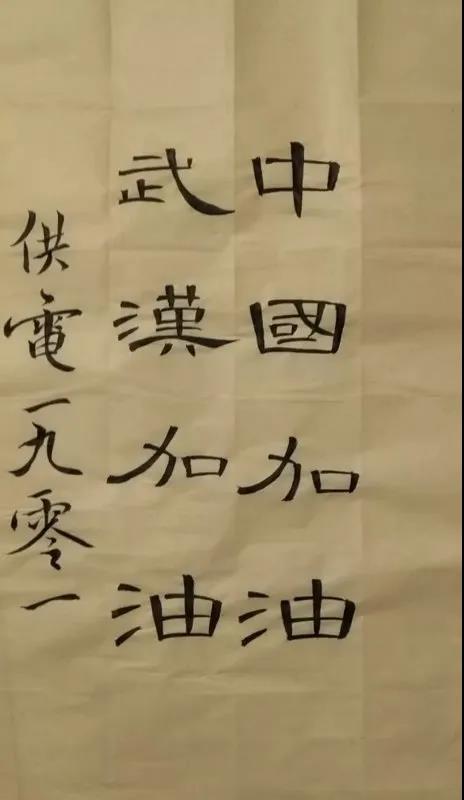 中國加油
武漢加油
供電一九零一